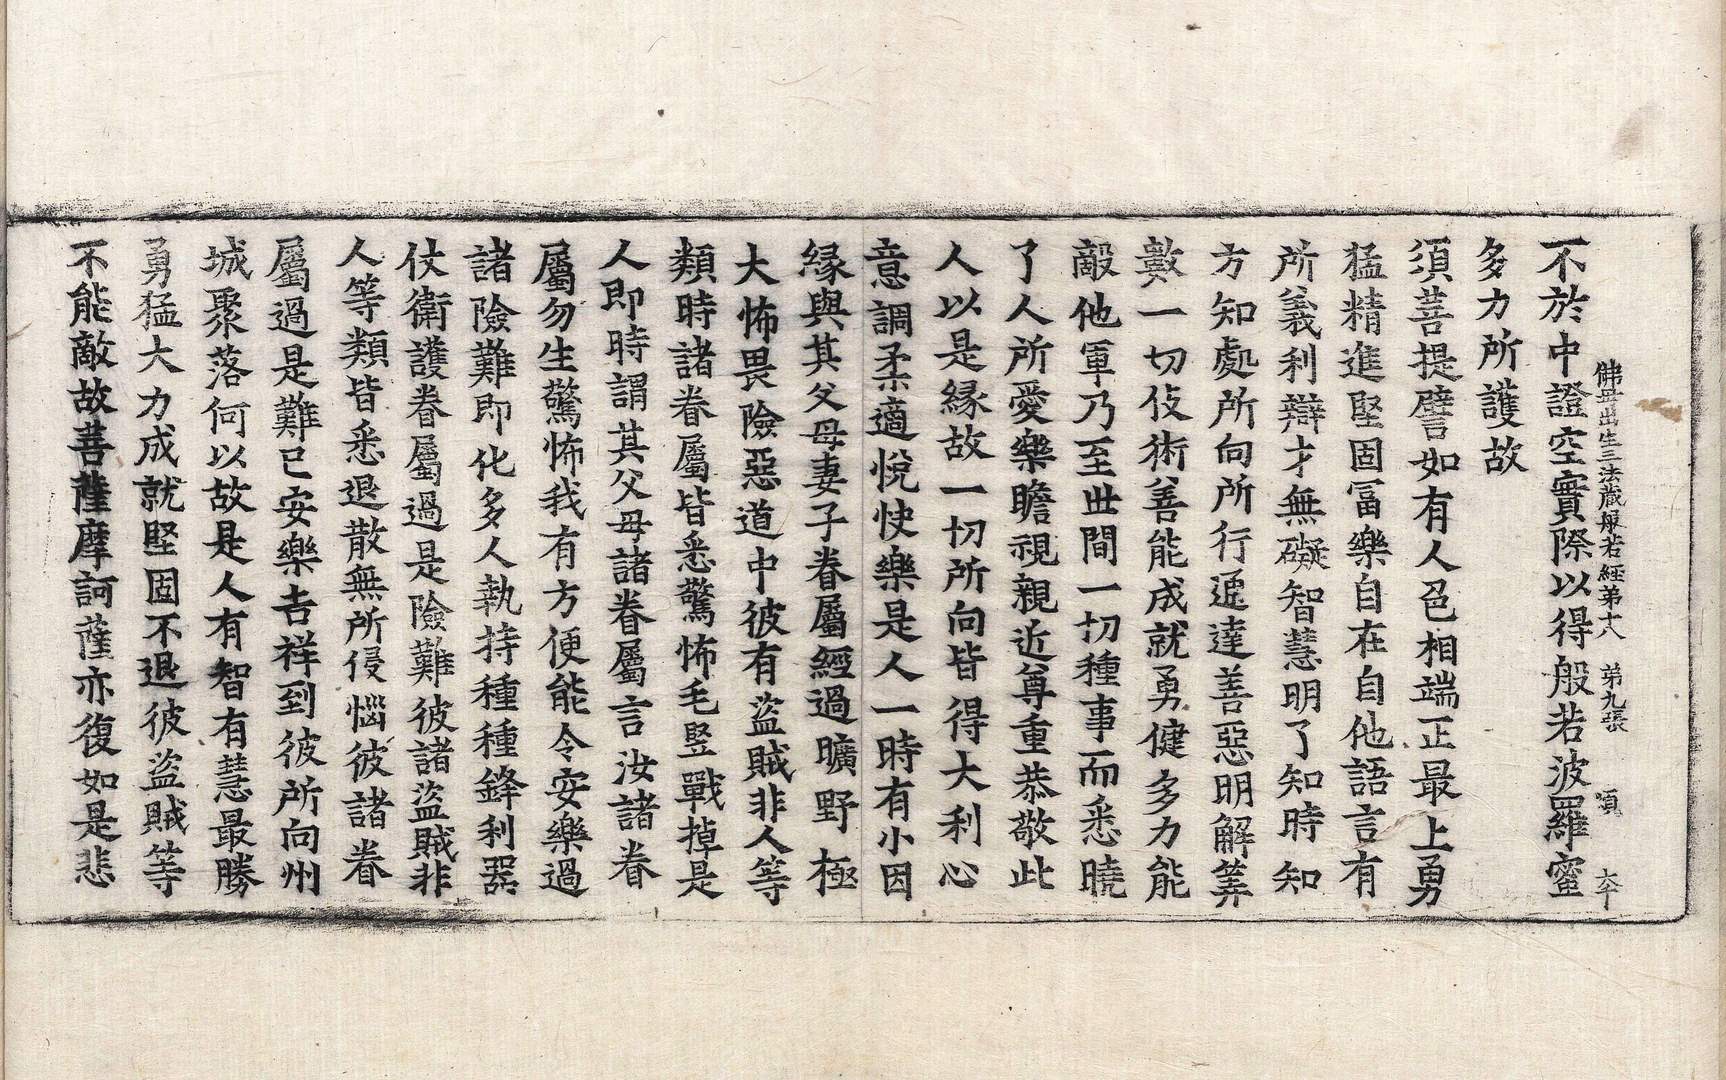 佛母出生三法藏般若經第十八 第九張 須 大个
不於中證空實際以得般若波羅蜜
多力所護故
須菩提譬如有人色相端正最上勇
猛精進堅固冨樂自在自他語言有
所義利辯才無礙智慧明了知時知
方知處所向所行通達善惡明解筭
數一切伎術善能成就勇健多力能
敵他軍乃至世間一切種事而悉曉
了人所愛樂瞻視親近尊重恭敬此
人以是緣故一切所向皆得大利心
意調柔適恱快樂是人一時有小因
緣與其父母妻子眷屬經過曠野極
大怖畏險惡道中彼有盜賊非人等
類時諸眷屬皆悉驚怖毛竪戰掉是
人即時謂其父母諸眷屬言汝諸眷
屬勿生驚怖我有方便能令安樂過
諸險難即化多人執持種種鋒利器
仗衛護眷屬過是險難彼諸盜賊非
人等類皆悉退散無所侵惱彼諸眷
屬過是難已安樂吉祥到彼所向州
城聚落何以故是人有智有慧最勝
勇猛大力成就堅固不退彼盜賊等
不能敵故菩薩摩訶薩亦復如是悲